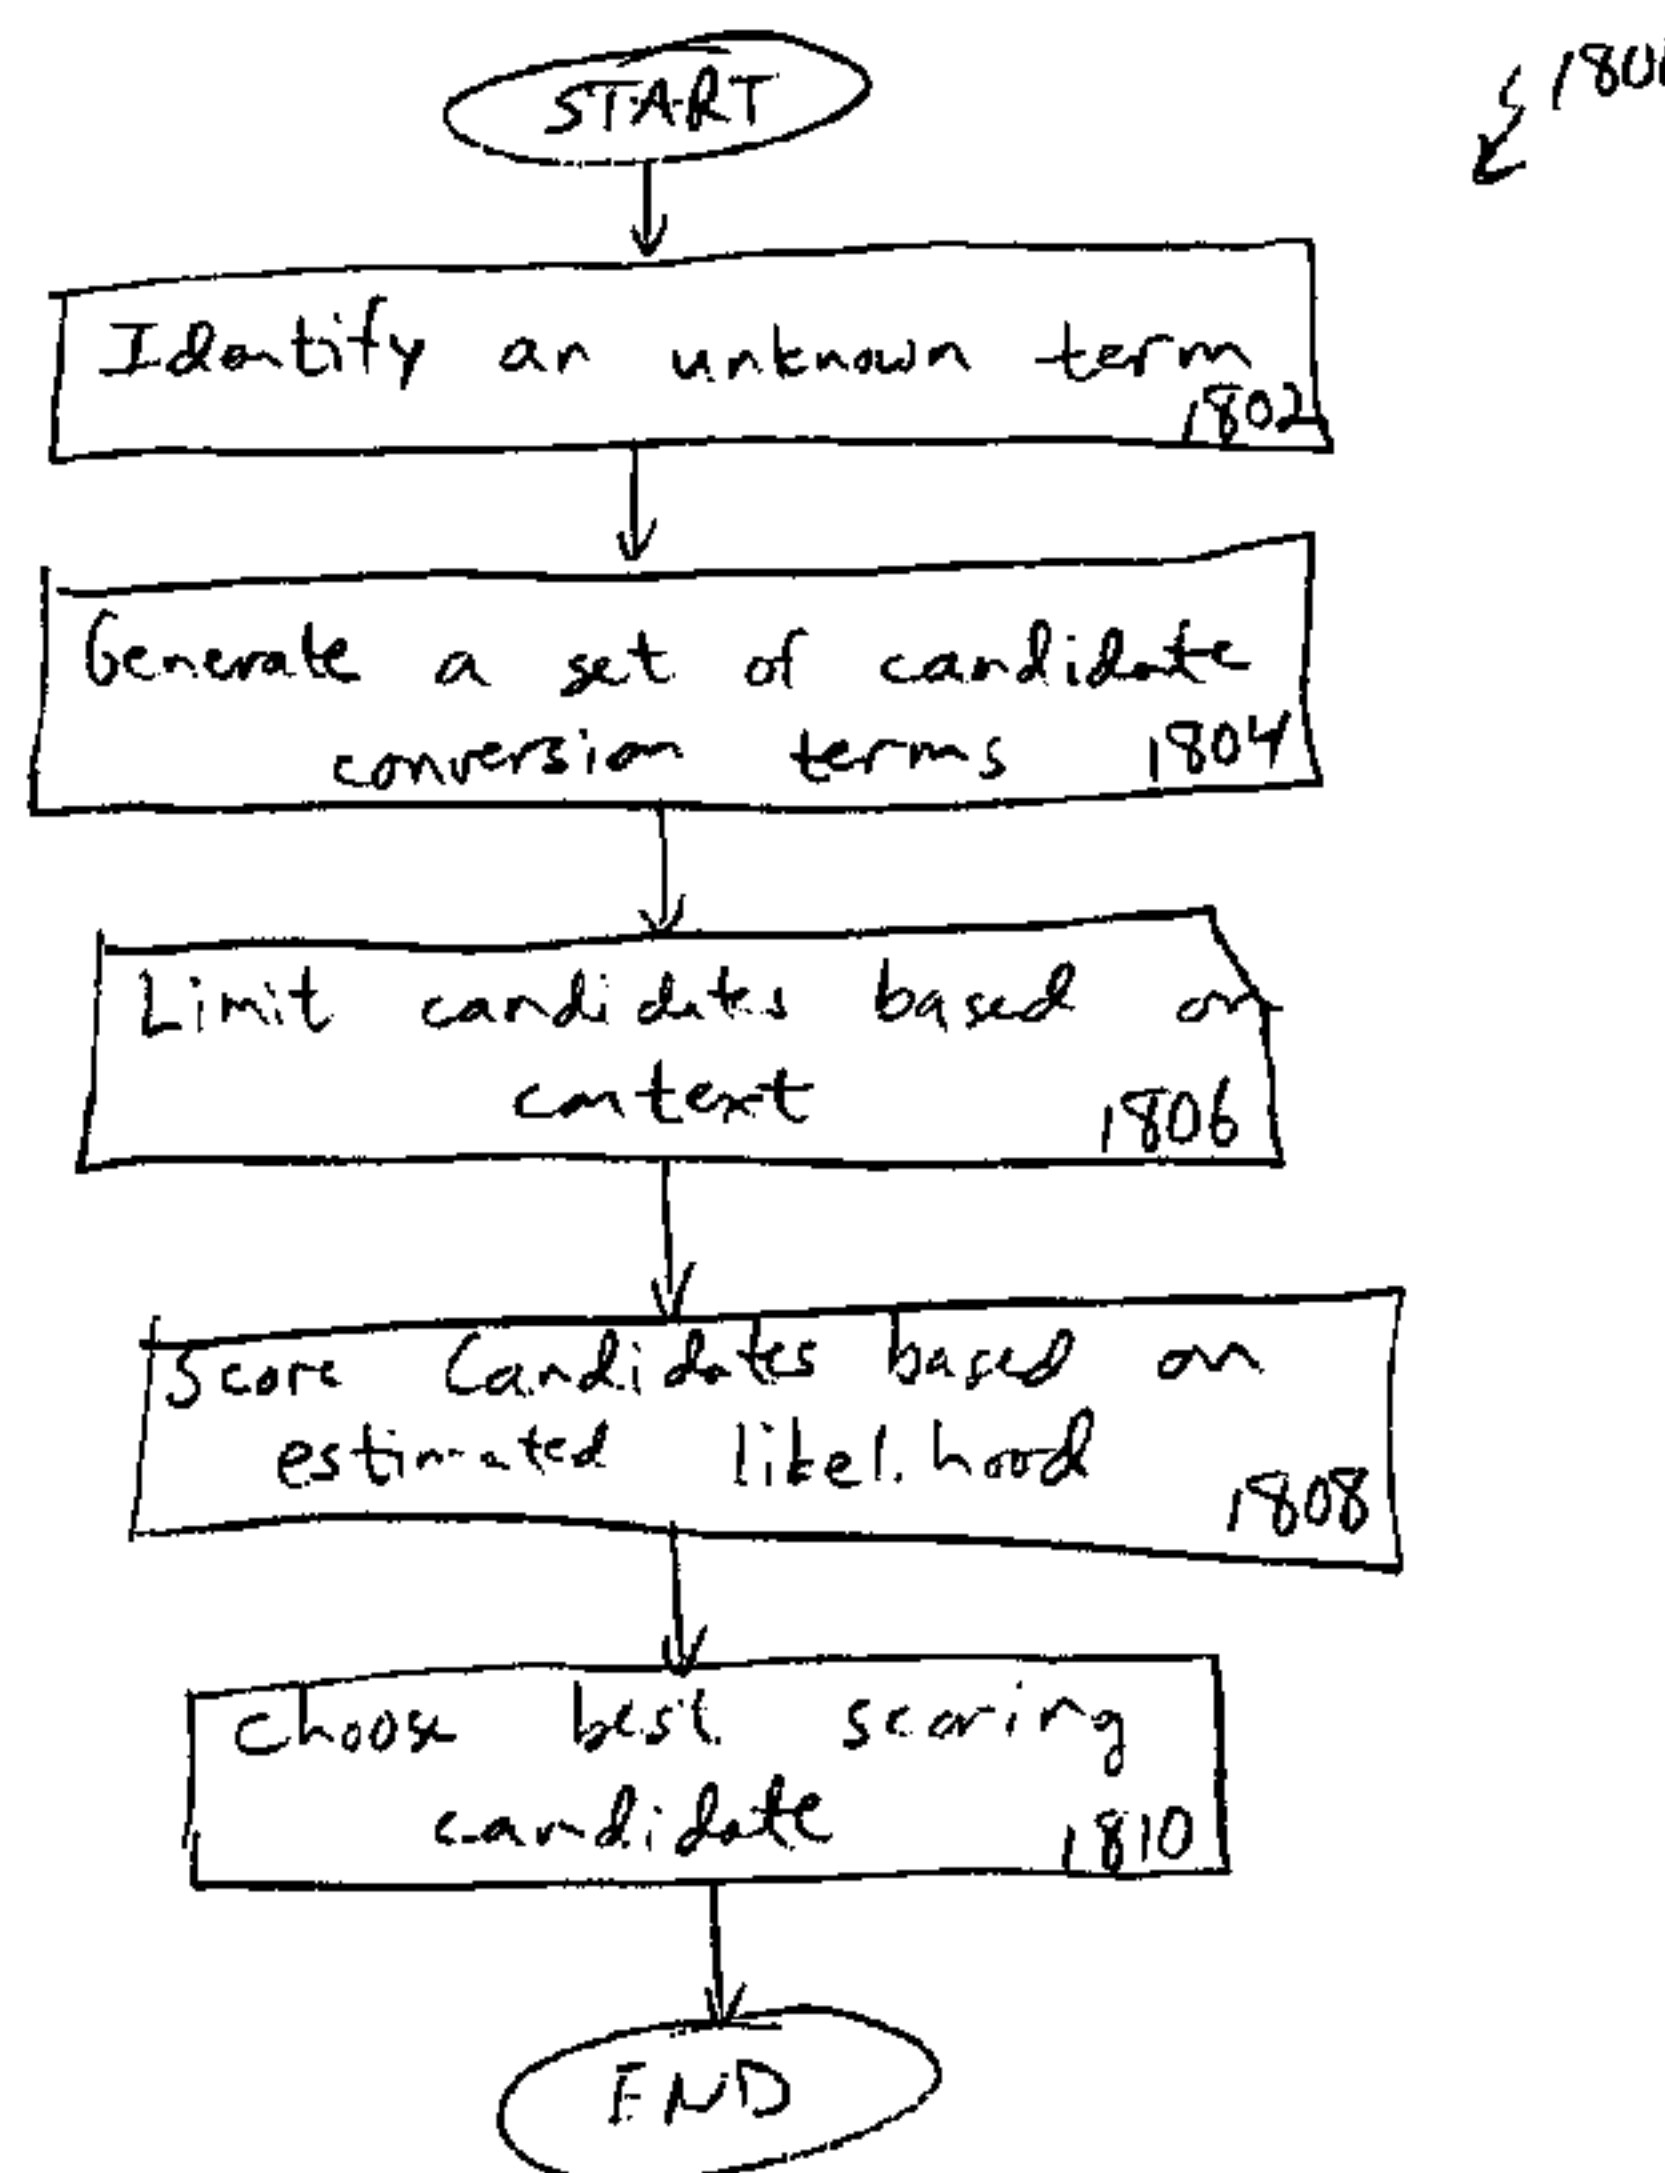 START
Identify an unknown term
1802
Generate a set of candidate
conversion terms 1804
Limit candidates based on
context 1806
Score Candidates based on
estimated likelihood
1808
Choose best scoring
candidate 1810
END